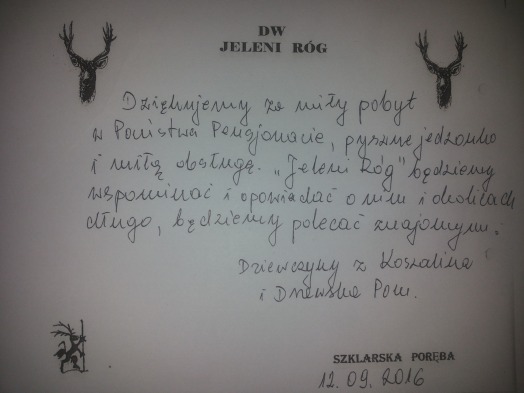 DW
JELENI RÓG
Dziękujemy za miły pobyt
w Państwa Pensjonacie, pyszne jedzonko
i miłą obsługę. „Jeleni Róg” będziemy
wspominać i opowiadać o nim i okolicach
długo, będziemy polecać znajomym.
Dziewczyny z Koszalina
i Drawska Pom.
SZKLARSKA PORĘBA
12.09.2016